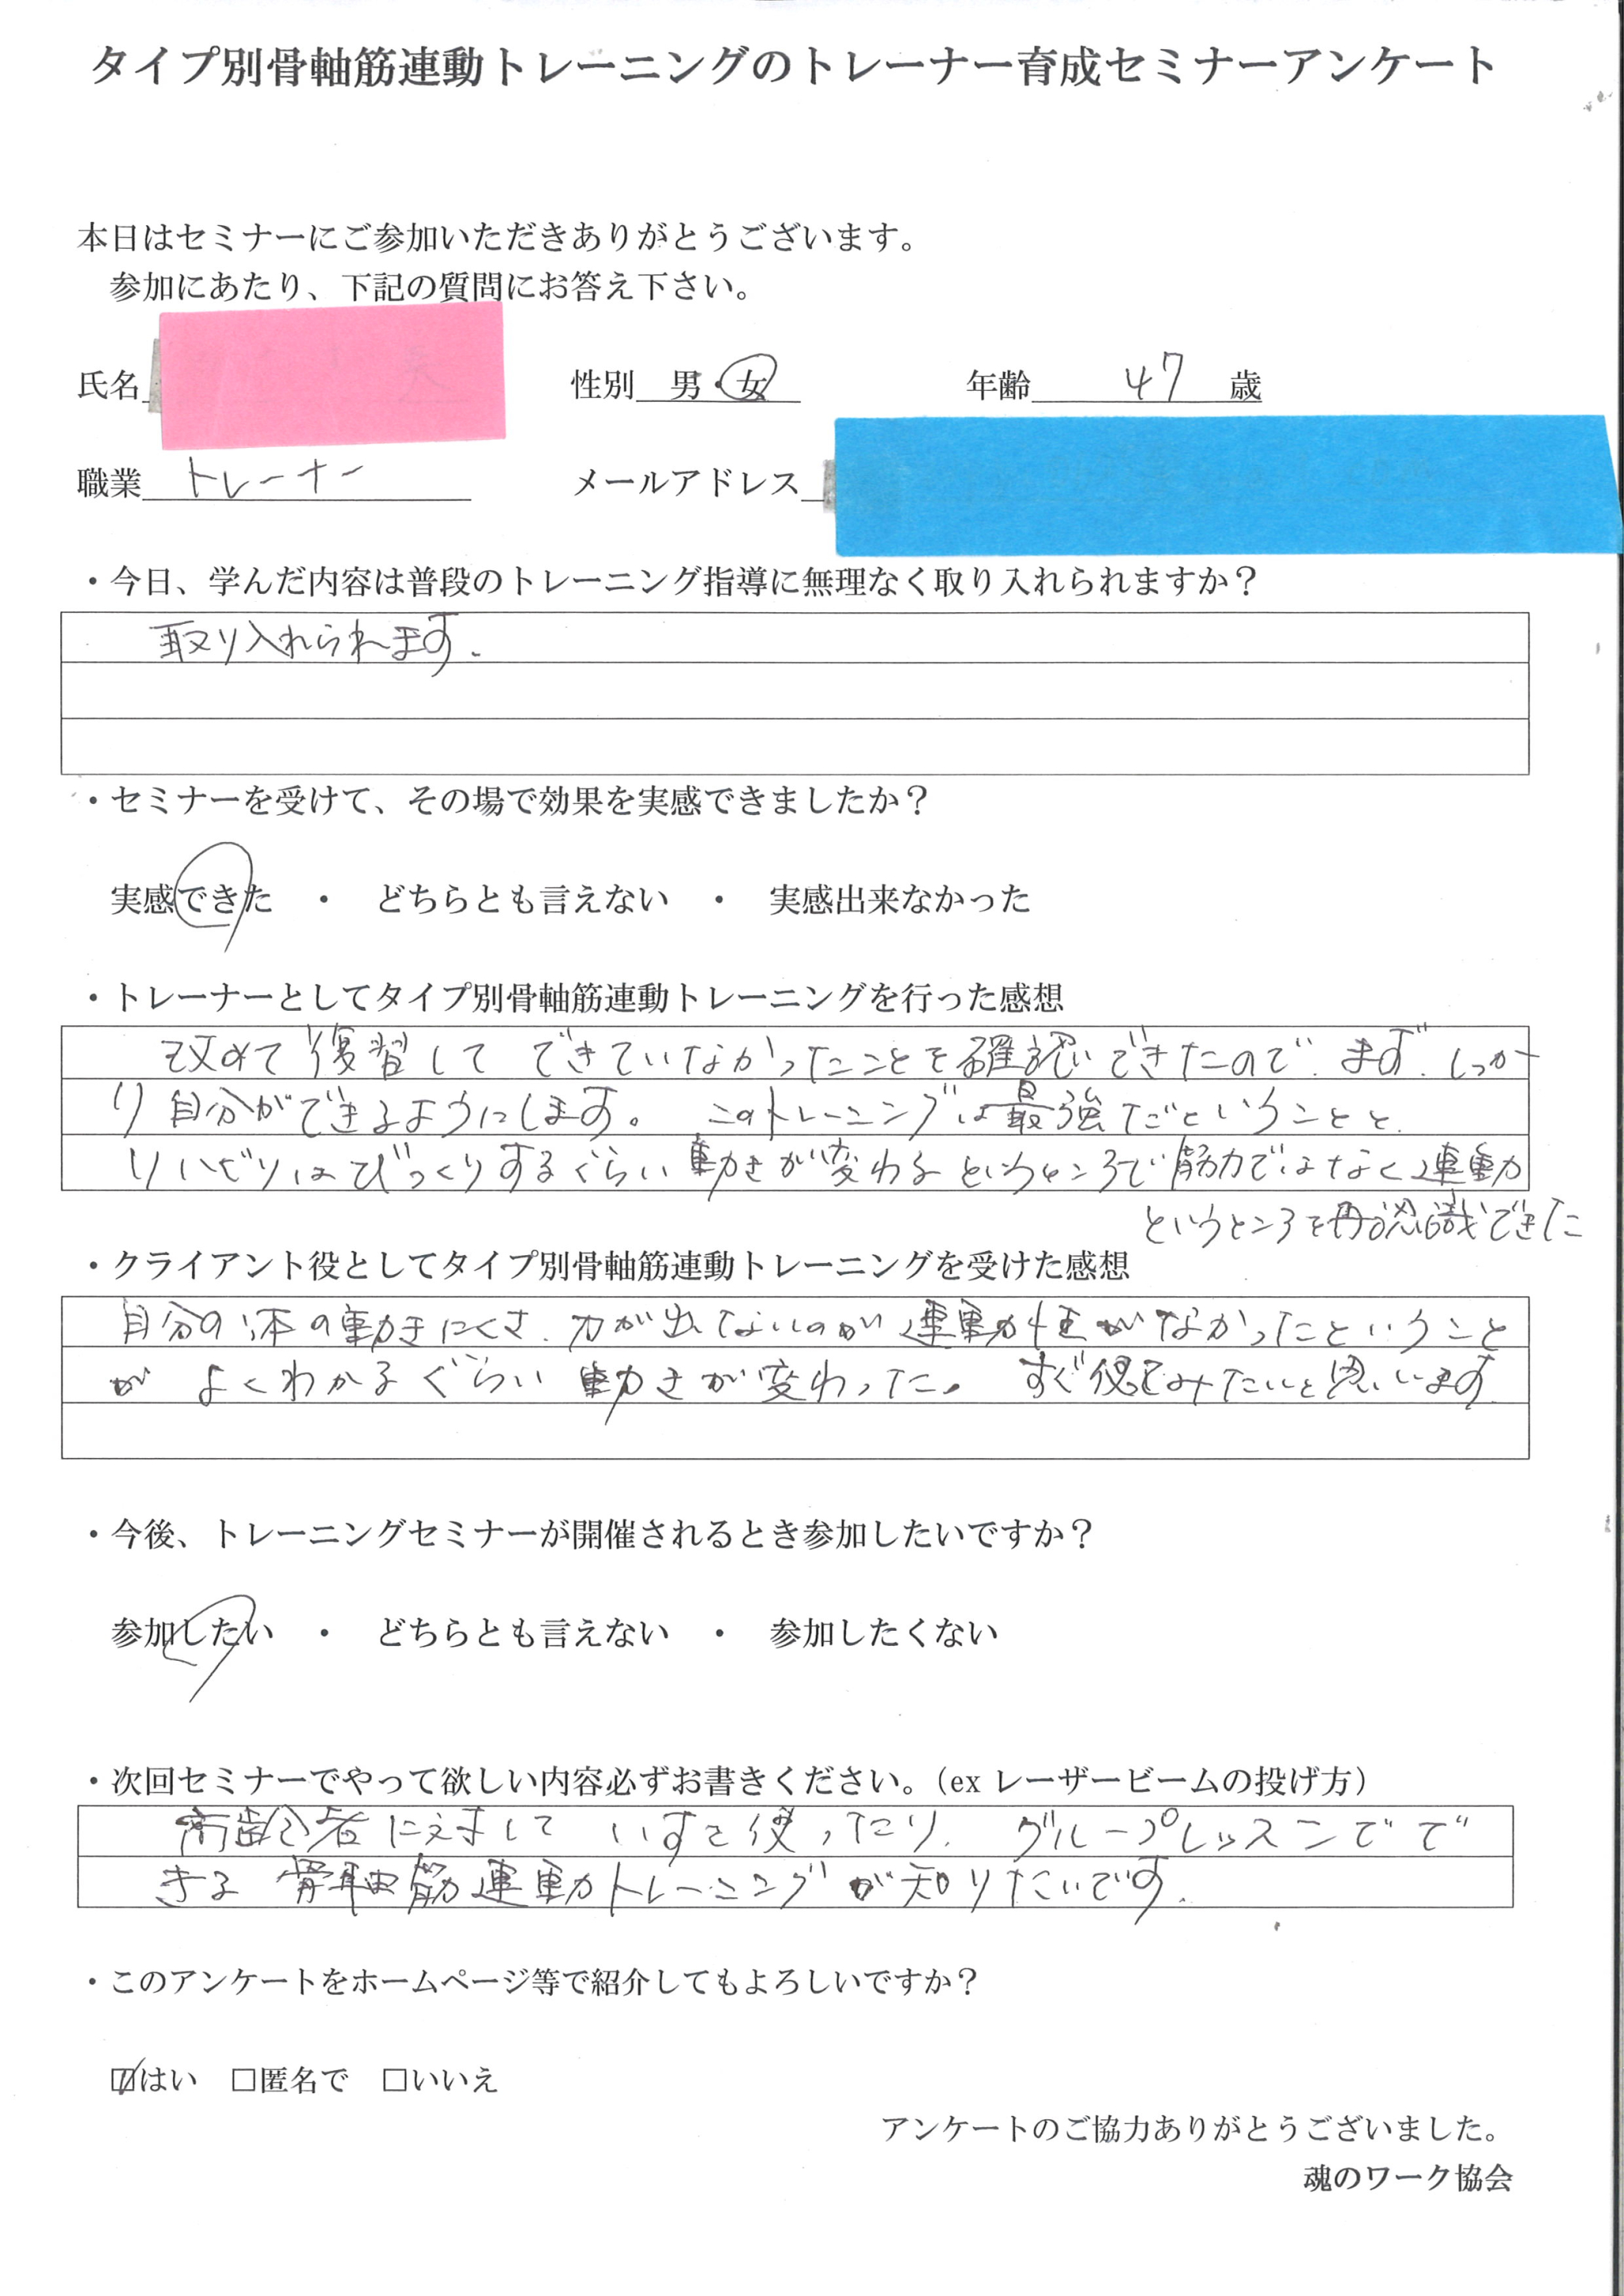 タイプ別骨軸筋連動トレーニングのトレーナー育成セミナーアンケート
本日はセミナーにご参加いただきありがとうございます。
参加にあたり、下記の質問にお答え下さい。
氏名 性別 男・女 年齢 47 歳
職業 トレーナー メールアドレス
・今日、学んだ内容は普段のトレーニング指導に無理なく取り入れられますか？
取り入れられます.
・セミナーを受けて、その場で効果を実感できましたか？
実感できた ・ どちらとも言えない ・ 実感出来なかった
・トレーナーとしてタイプ別骨軸筋連動トレーニングを行った感想
改めて復習して できていなかったことを確認できたので. まず. しっか
り自分ができるようにします。 このトレーニングは最強だということと.
リハビリはびっくりするぐらい動きが変わるというところで筋力ではなく連動
というところを再認識できた
・クライアント役としてタイプ別骨軸筋連動トレーニングを受けた感想
自分の体の動きにくさ. 力が出ないのが 連動性がなかったということ
が よくわかるぐらい 動きが変わった。 すぐ みたいと思います.
・今後、トレーニングセミナーが開催されるとき参加したいですか？
参加したい ・ どちらとも言えない ・ 参加したくない
・次回セミナーでやって欲しい内容必ずお書きください。（ex レーザービームの投げ方）
高齢者に対して いすを使ったり. グループレッスンでで
きる 骨軸筋連動トレーニングが知りたいです.
・このアンケートをホームページ等で紹介してもよろしいですか？
☑はい □匿名で □いいえ
アンケートのご協力ありがとうございました。
魂のワーク協会